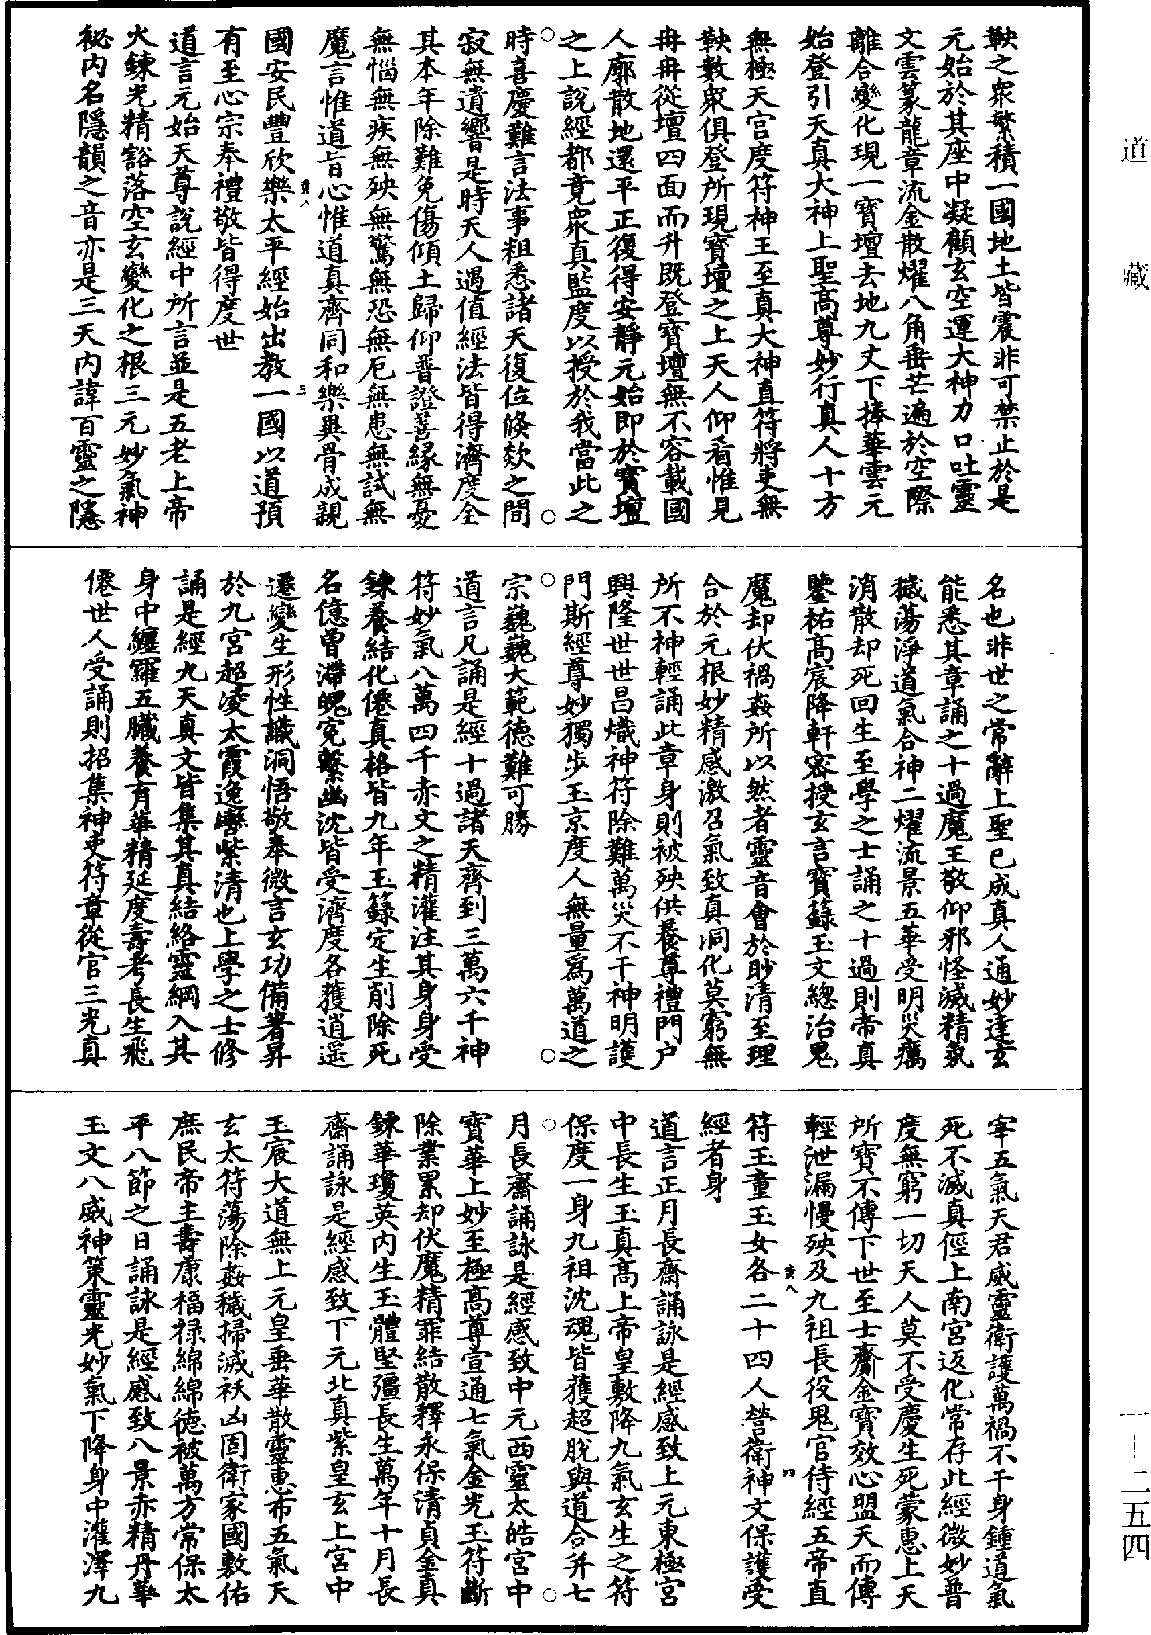 鞅之衆繁積一國地土皆震非可禁止於是
元始於其座中凝顧玄空運大神力口吐靈
文雲篆龍章流金散燿八角垂芒遍於空際
離合變化現一寶壇去地九丈下捧華雲元
始登引天真大神上聖高尊妙行真人十方
無極天宮度符神王至真大神真符將吏無
鞅數衆俱登所現寶壇之上天人仰看惟見
冉冉從壇四面而升既登寶壇無不容載國
人廓散地還平正復得安靜元始即於寶壇
之上說經都竟衆真監度以授於我當此之
時喜慶難言法事粗悉諸天復位倏欻之間
寂無遺響是時天人遇值經法皆得濟度全
其本年除難免傷傾土歸仰普證善緣無憂
無惱無疾無殃無驚無恐無厄無患無試無
魔言惟道旨心惟道真齊同和樂異骨成親
國安民豐欣樂太平經始出教一國以道預
有至心宗奉禮敬皆得度世
道言元始天尊說經中所言並是五老上帝
火鍊光精豁落空玄變化之根三元妙氣神
祕內名隱韻之音亦是三天內諱百靈之隱
名也非世之常辭上聖已成真人通妙達玄
能悉其章誦之十過魔王敬仰邪怪滅精氣
穢蕩淨道氣合神二燿流景五華受明災癘
消散却死回生至學之士誦之十過則帝真
鑒祐高宸降軒密授玄言寶籙玉文總治鬼
魔却伏禍姦所以然者靈音會於眇清至理
合於元根妙精感激召氣致真洞化莫窮無
所不神輕誦此章身則被殃供養尊禮門户
興隆世世昌熾神符除難萬災不干神明護
門斯經尊妙獨步玉京度人無量爲萬道之
宗巍巍大範德難可勝
道言凡誦是經十過諸天齊到三萬六千神
符妙氣八萬四千赤文之精灌注其身身受
鍊養結化僊真格皆九年玉籙定生削除死
名億曾滯魄寃繫幽沈皆受濟度各獲逍遥
遷變生形性識洞悟敬奉微言玄功備著昇
於九宮超凌太霞逸轡紫清也上學之士修
誦是經九天真文皆集其真結絡靈綱入其
身中纏羅五臟養有華精延度壽考長生飛
僊世人受誦則招集神吏符章從官三光真
宰五氣天君威靈衛護萬禍不干身鍾道氣
死不滅真徑上南宮返化常存此經微妙普
度無窮一切天人莫不受慶生死蒙惠上天
所寶不傳下世至士齎金寶效心盟天而傳
輕泄漏慢殃及九祖長役鬼官侍經五帝直
符玉童玉女各二十四人營衛神文保護受
經者身
道言正月長齋誦詠是經感致上元東極宮
中長生玉真高上帝皇敷降九氣玄生之符
保度一身九祖沈魂皆獲超脫與道合并七
月長齋誦詠是經感致中元西靈太皓宮中
寶華上妙至極高尊宣通七氣金光玉符斷
除業累却伏魔精罪結散釋永保清貞金真
鍊華瓊英內生玉體堅彊長生萬年十月長
齋誦詠是經感致下元北真紫皇玄上宮中
玉宸大道無上元皇垂華散靈惠布五氣天
玄太符蕩除姦穢掃滅祅凶固衛家國敷佑
庶民帝主壽康福祿綿綿德被萬方常保太
平八節之日誦詠是經感致八景赤精丹華
玉文八威神策靈光妙氣下降身中灌澤九
道藏
一—二五四